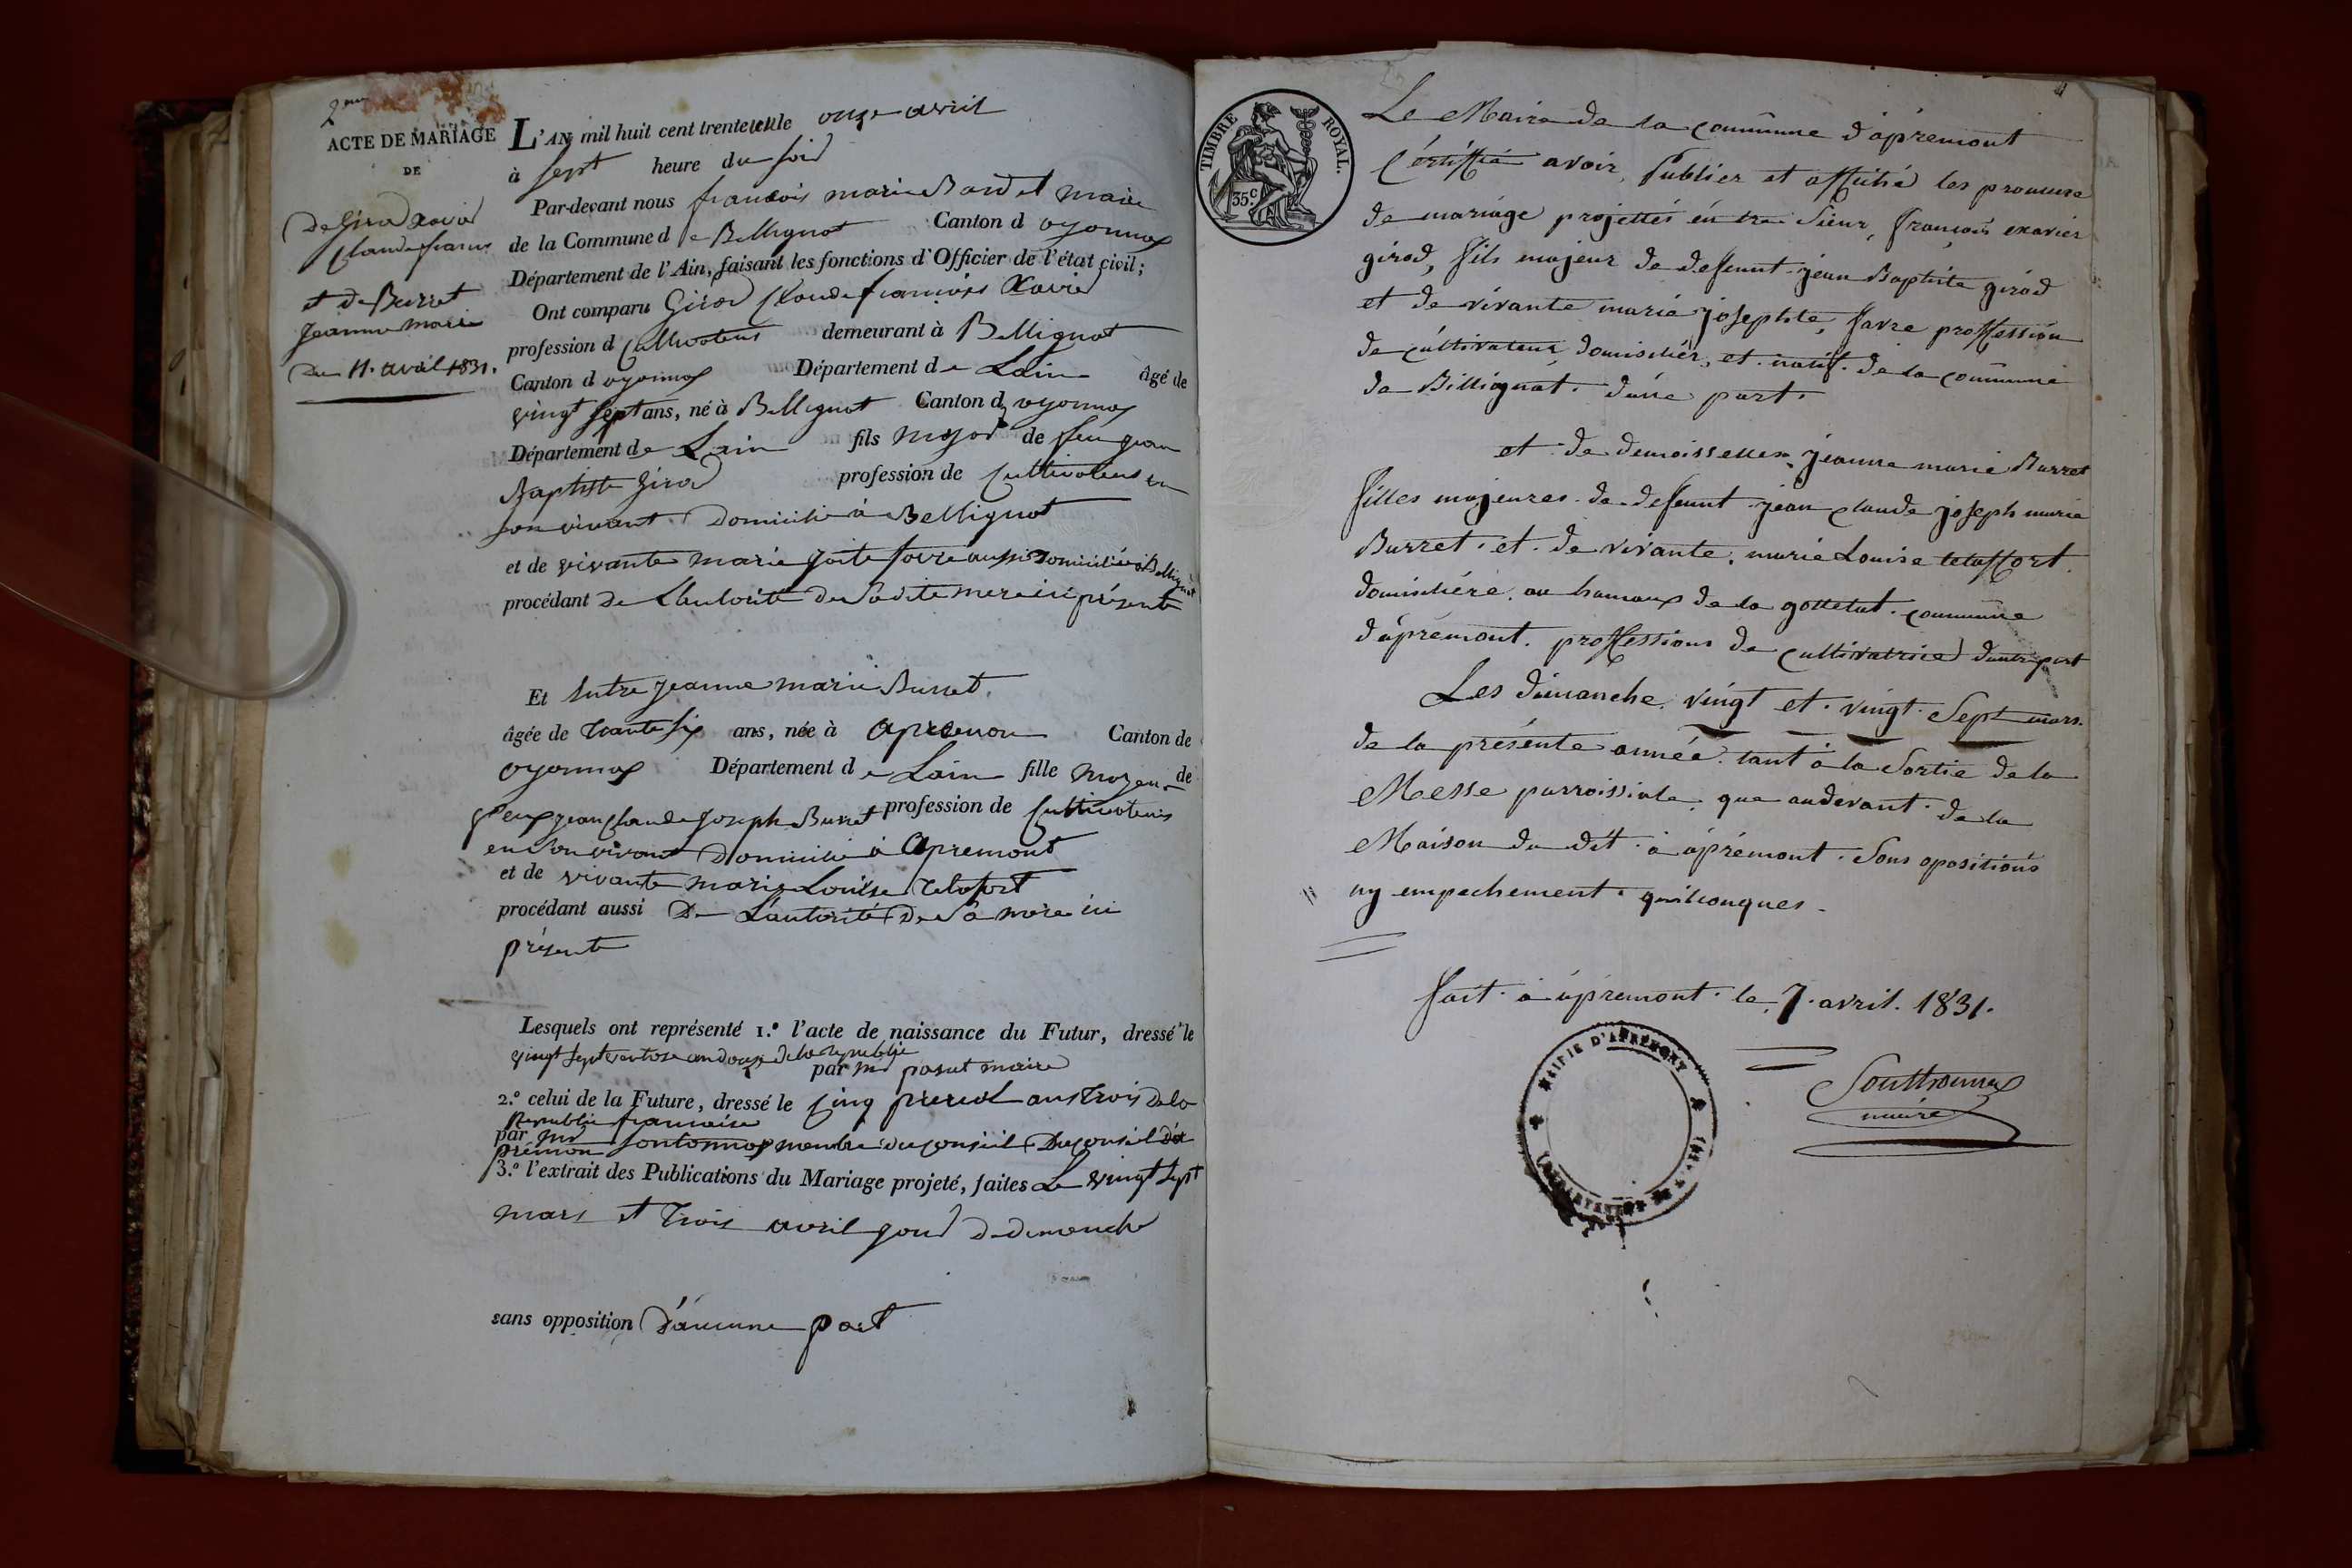 2me
ACTE DE MARIAGE
DE
De Girod Xavier
Claude françois
et de Burret
Jeanne Marie
Du 11. avril 1831.
L'AN mil huit cent trente et un le onze avril
à sept heure du soir
Par-devant nous françois marie Bardet maire
de la Commune de Bellignat Canton d oyonnax
Département de l'Ain, faisant les fonctions d'Officier de l'état civil;
Ont comparu Girod Claude françois Xavier
profession d Cultivateur demeurant à Bellignat
Canton d oyonnax Département de Lain âgé de
vingt sept ans, né à Bellignat Canton d oyonnax
Département de Lain fils majeur de feu jean
Baptiste Girod profession de Cultivateur en
son vivant Domicilié à Bellignat
et de vivante marie josette favre aussi Domiciliée à Bellignat
procédant De L'autorité De Sadite mere ici présente
Et Entre Jeanne marie Burret
âgée de Trante six ans, née à apremon Canton de
oyonnax Département de Lain fille mageure de
feux jean Claude Joseph Burret profession de Cultivateur
en Son vivant Domicilié à apremont
et de vivante marie Louise Tetafort
procédant aussi De L'autorité De Sa mere ici
présente
Lesquels ont représenté 1.º l'acte de naissance du Futur, dressé le
vingt sept ventose an douze de la republie
par mr posut maire
2.º celui de la Future, dressé le Cinq prereal ans Trois De la
Republie française
par mr Sontonnax membre du conseil Du conseil d'a
premon
3.º l'extrait des Publications du Mariage projeté, faites Le vingt sept
mars et Trois avril jour De dimenche
sans opposition D'aucune part
TIMBRE ROYAL.
35 C
Le Maire de la commune d'apremont
Certiffié avoir Publier et affiché les promesse
de mariage projettés entre Sieur, françois exavier
girod, fils majeur de deffunt jean Baptiste girod
et de vivante marie josephte, favre proffession
de cultivateur domiscilier, et natif de la commune
de Billignat. d'une part.
et de demoisselles jeanne marie Burret
filles majeures de deffunt jean claude joseph marie
Burret et de vivante marie Louise tetaffort
domisiliére au hamaux de la gottetat commune
d'apremont. proffessions de cultivatrice d'autre part
Les dimanche vingt et vingt Sept mars
de la présente année tant à la Sortie de la
Messe parroissiale que audevant de la
Maison du dit à apremont. Sans opositions
ny empechement quelconques
fait à apremont le 7 avril. 1831.
MAIRIE D'APREMONT
Southonnax
maire